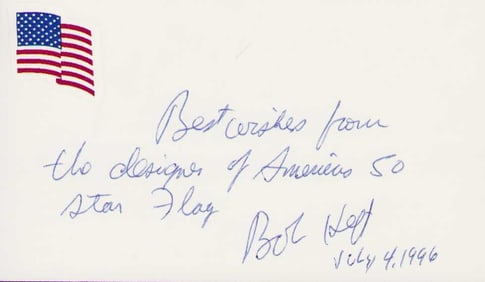 Best wishes from
the designer of Americas 50
star Flag
Bob Heft
July 4, 1996